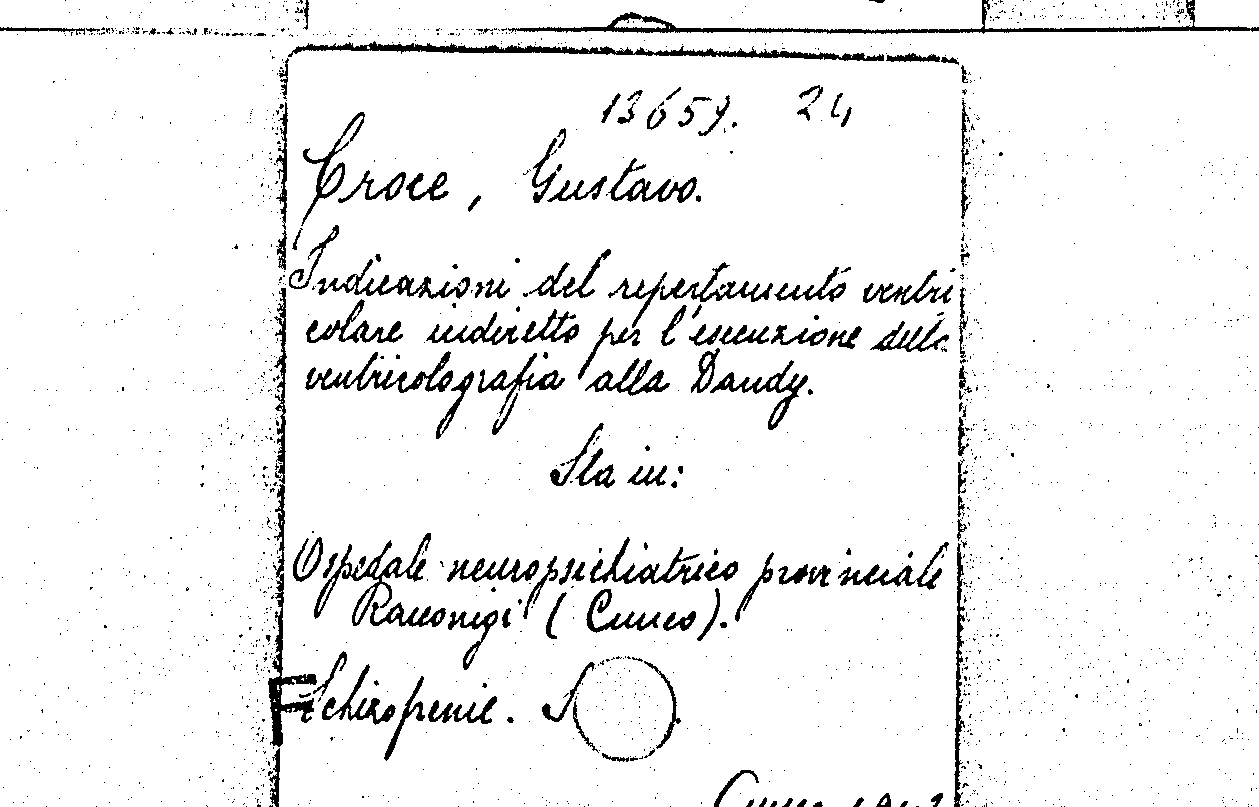 13659. 24
Croce, Gustavo.
Indicazioni del repertamento ventri
colare indiretto per l'esecuzione della
ventricolografia alla Dandy.
Sta in:
Ospedale neuropsichiatrico provinciale
Racconigi (Cuneo).
Schizofrenie. S
Cuneo